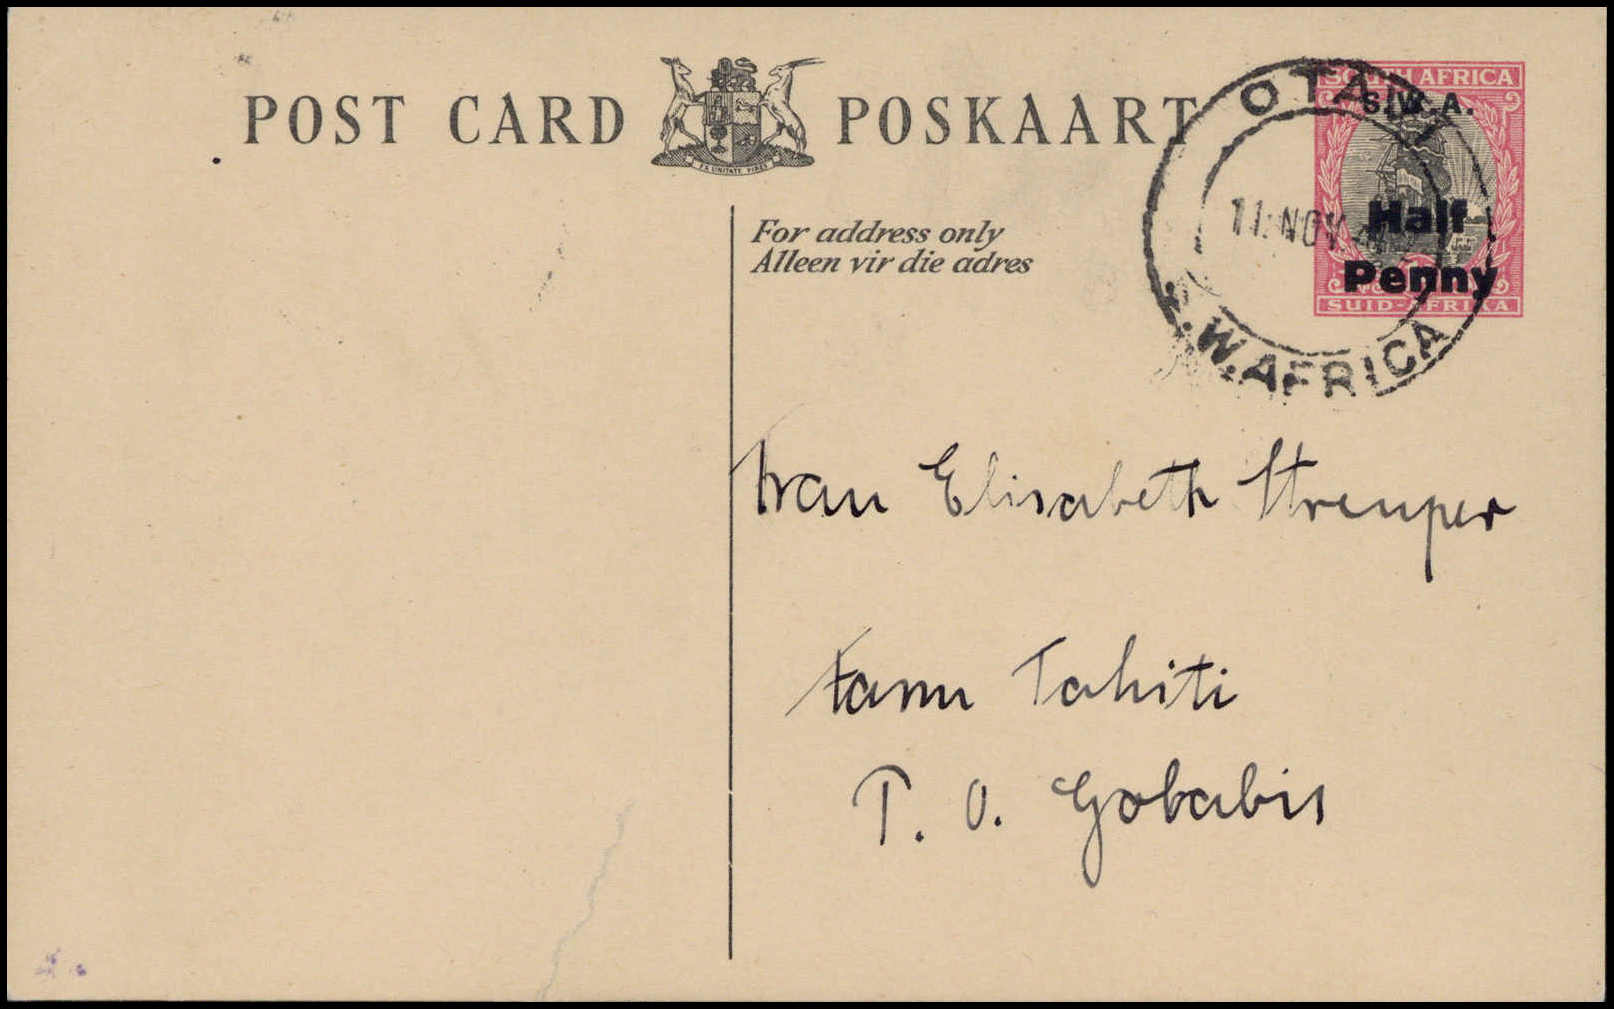 POST CARD POSKAART
EX UNITATE VIRES
SOUTH AFRICA
S.W.A.
Half
Penny
SUID-AFRIKA
OTAVI
11 NOV
S.W.AFRICA
For address only
Alleen vir die adres
Frau Elisabeth Streuper
Farm Tahiti
P. O. Gobabis